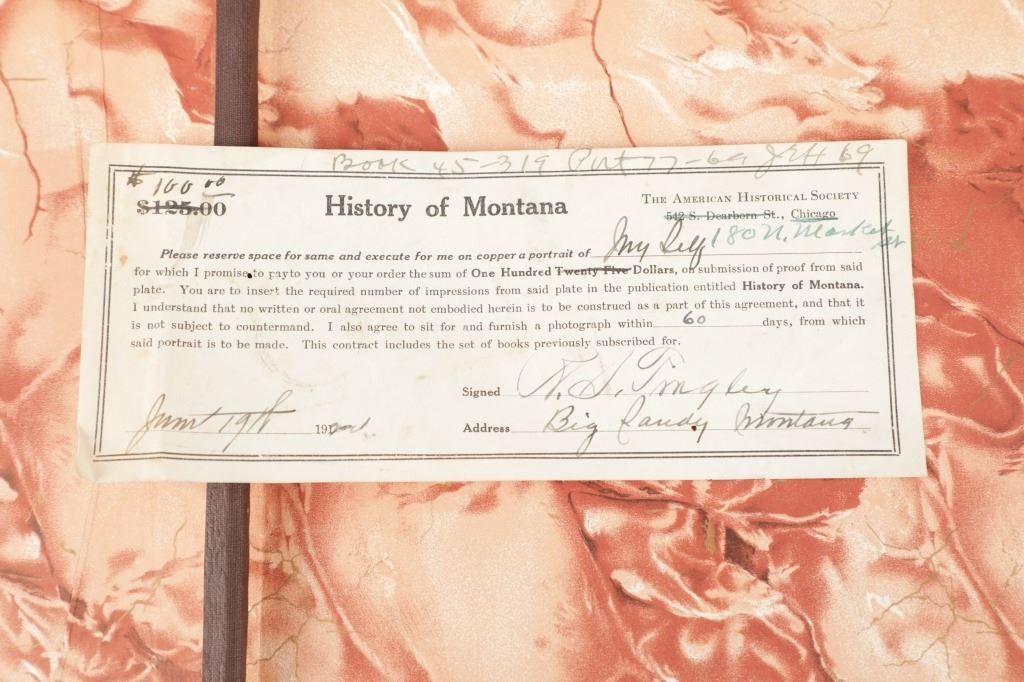 Book 45-319 Port 77-69 J&H 69
$100.00
$125.00
History of Montana
THE AMERICAN HISTORICAL SOCIETY
542 S. Dearborn St., Chicago
180 N. Market St
Please reserve space for same and execute for me on copper a portrait of My Self
for which I promise to pay to you or your order the sum of One Hundred Twenty Five Dollars, on submission of proof from said
plate. You are to insert the required number of impressions from said plate in the publication entitled History of Montana.
I understand that no written or oral agreement not embodied herein is to be construed as a part of this agreement, and that it
is not subject to countermand. I also agree to sit for and furnish a photograph within 60 days, from which
said portrait is to be made. This contract includes the set of books previously subscribed for.
Signed N. S. Tingley
June 19th 19
Address Big Sandy Montana